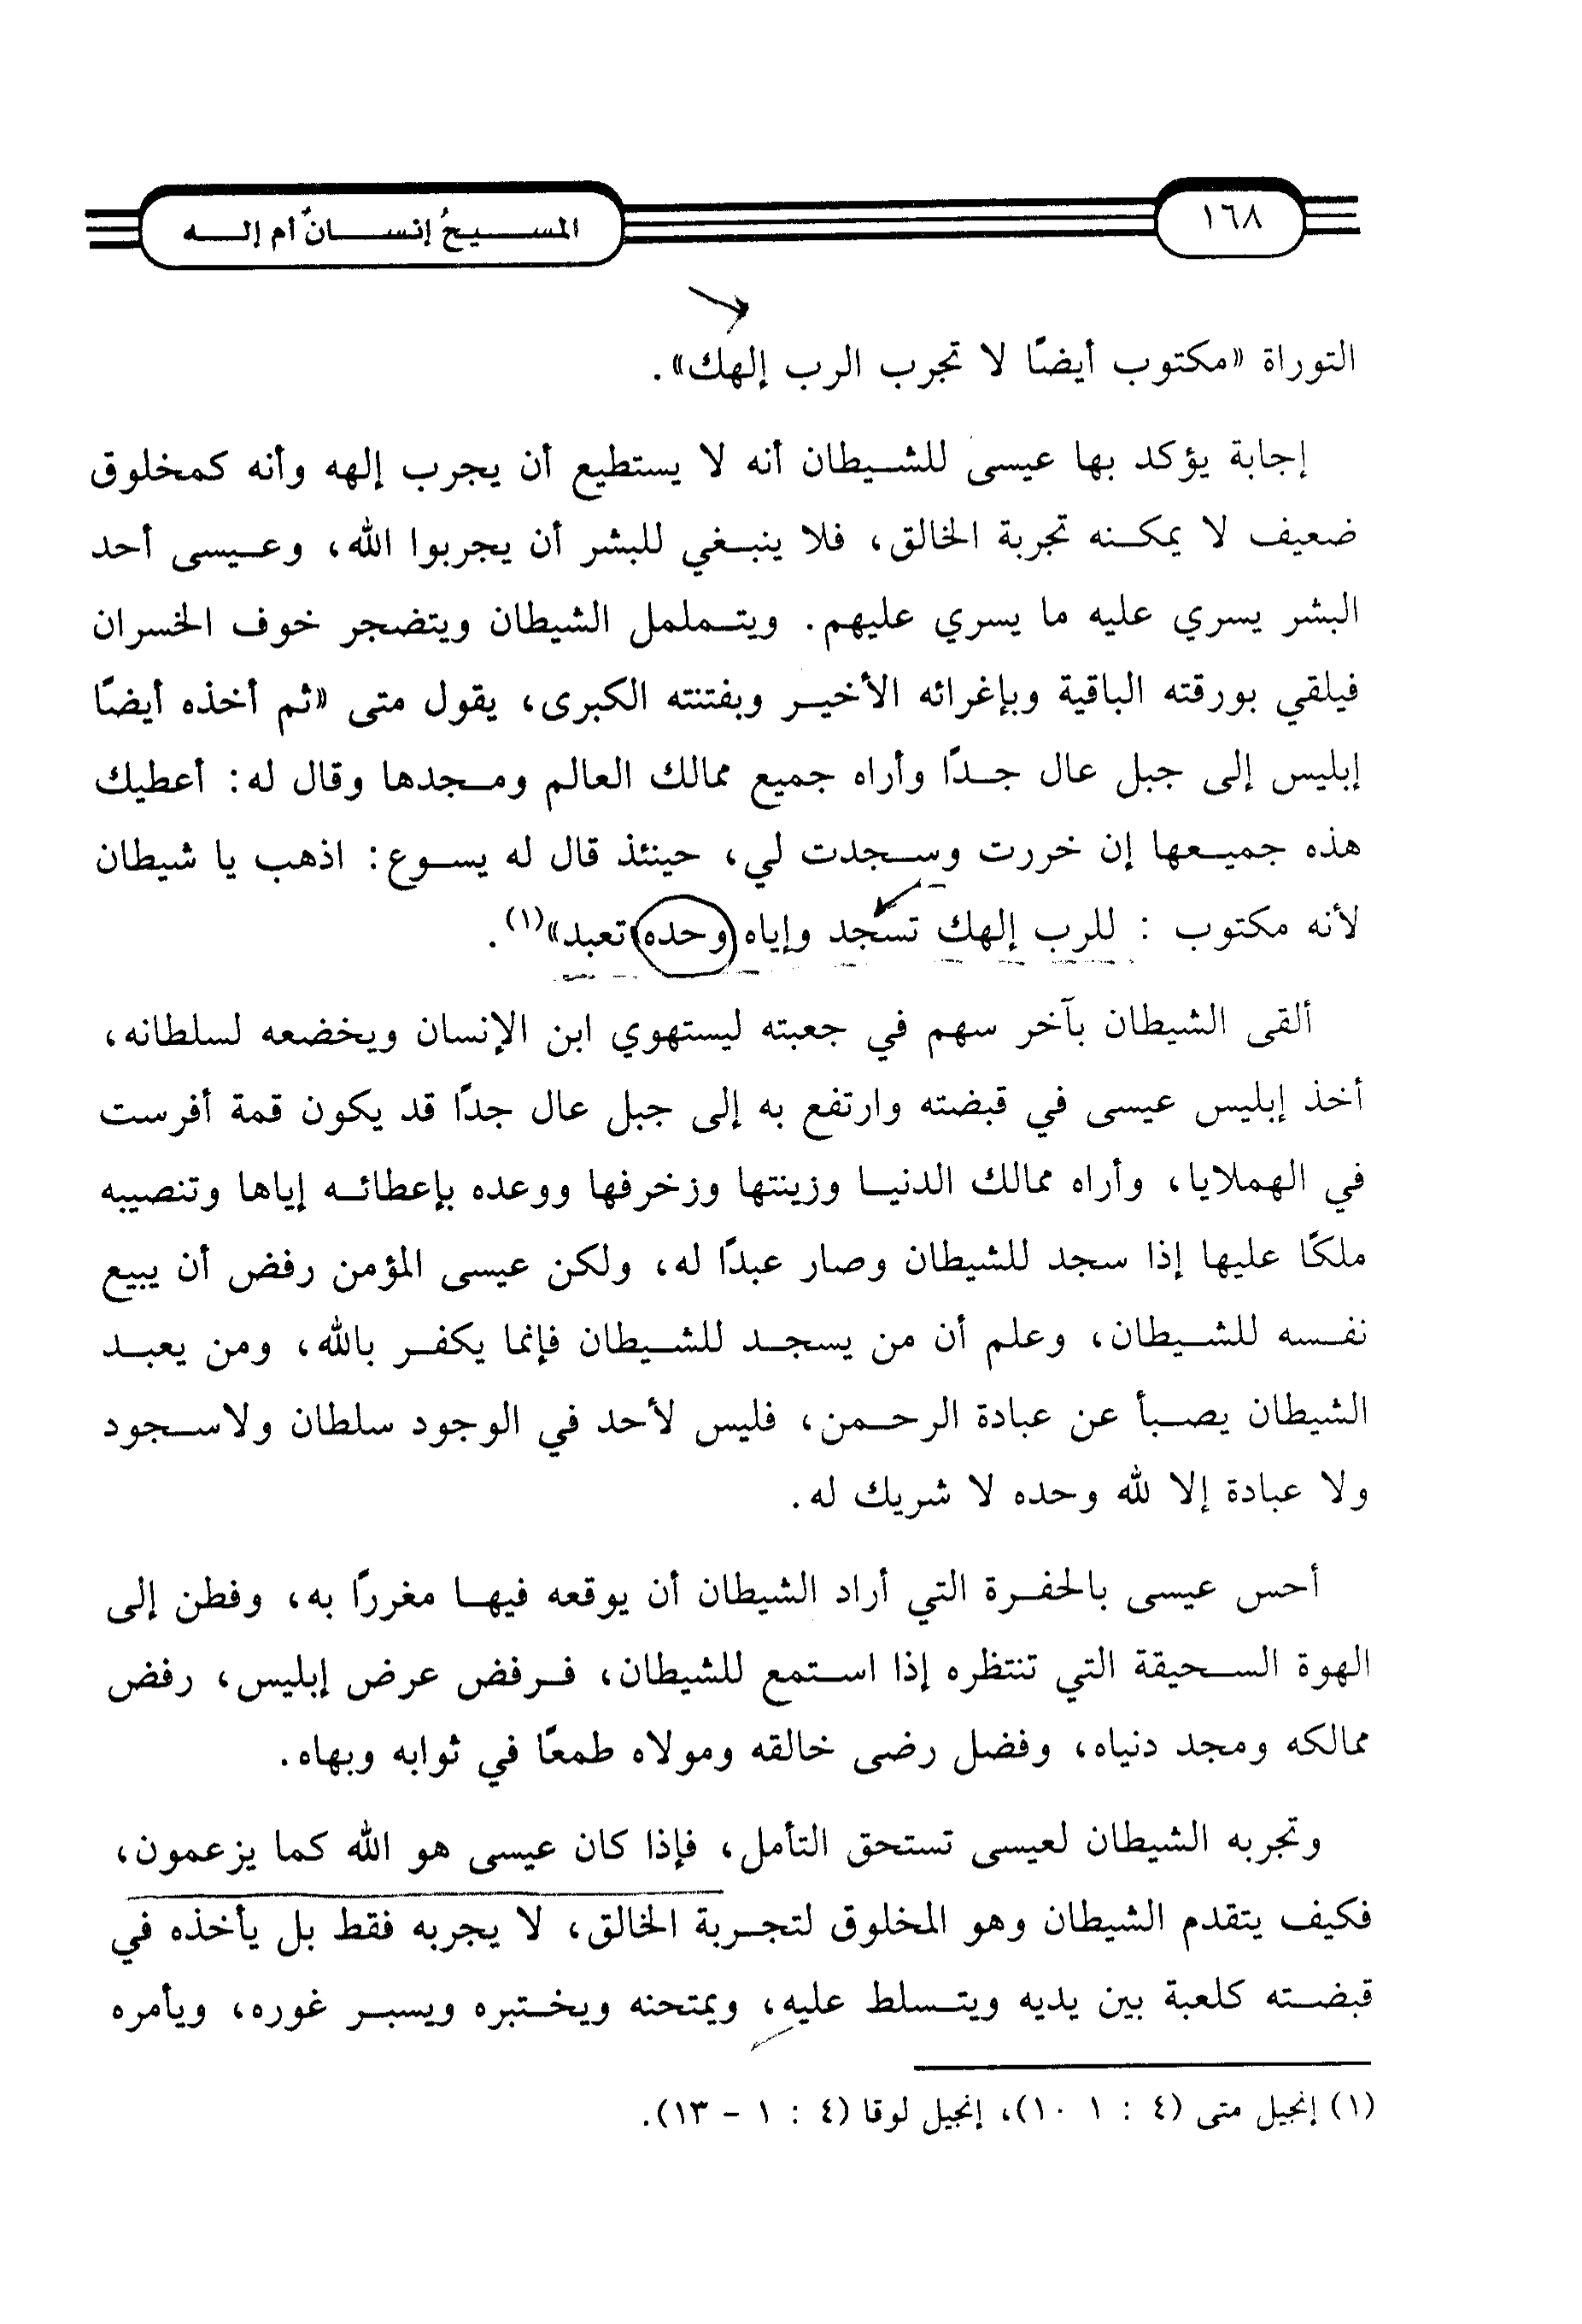 ١٦٨
المسيحُ إنسانٌ أم إله
التوراة «مكتوب أيضًا لا تجرب الرب إلهك».
إجابة يؤكد بها عيسى للشيطان أنه لا يستطيع أن يجرب إلهه وأنه كمخلوق
ضعيف لا يمكنه تجربة الخالق، فلا ينبغي للبشر أن يجربوا الله، وعيسى أحد
البشر يسري عليه ما يسري عليهم. ويتململ الشيطان ويتضجر خوف الخسران
فيلقي بورقته الباقية وبإغرائه الأخير وبفتنته الكبرى، يقول متى «ثم أخذه أيضًا
إبليس إلى جبل عال جدًا وأراه جميع ممالك العالم ومجدها وقال له: أعطيك
هذه جميعها إن خررت وسجدت لي، حينئذ قال له يسوع: اذهب يا شيطان
لأنه مكتوب : للرب إلهك تسجد وإياه وحده تعبد»(١).
ألقى الشيطان بآخر سهم في جعبته ليستهوي ابن الإنسان ويخضعه لسلطانه،
أخذ إبليس عيسى في قبضته وارتفع به إلى جبل عال جدًا قد يكون قمة أفرست
في الهملايا، وأراه ممالك الدنيا وزينتها وزخرفها ووعده بإعطائه إياها وتنصيبه
ملكًا عليها إذا سجد للشيطان وصار عبدًا له، ولكن عيسى المؤمن رفض أن يبيع
نفسه للشيطان، وعلم أن من يسجد للشيطان فإنما يكفر بالله، ومن يعبد
الشيطان يصبأ عن عبادة الرحمن، فليس لأحد في الوجود سلطان ولاسجود
ولا عبادة إلا لله وحده لا شريك له.
أحس عيسى بالحفرة التي أراد الشيطان أن يوقعه فيها مغررًا به، وفطن إلى
الهوة السحيقة التي تنتظره إذا استمع للشيطان، فرفض عرض إبليس، رفض
ممالكه ومجد دنياه، وفضل رضى خالقه ومولاه طمعًا في ثوابه وبهاه.
وتجربه الشيطان لعيسى تستحق التأمل، فإذا كان عيسى هو الله كما يزعمون،
فكيف يتقدم الشيطان وهو المخلوق لتجربة الخالق، لا يجربه فقط بل يأخذه في
قبضته كلعبة بين يديه ويتسلط عليه، ويمتحنه ويختبره ويسبر غوره، ويأمره
(١) إنجيل متى (٤ : ١ ١٠)، إنجيل لوقا (٤ : ١ - ١٣).